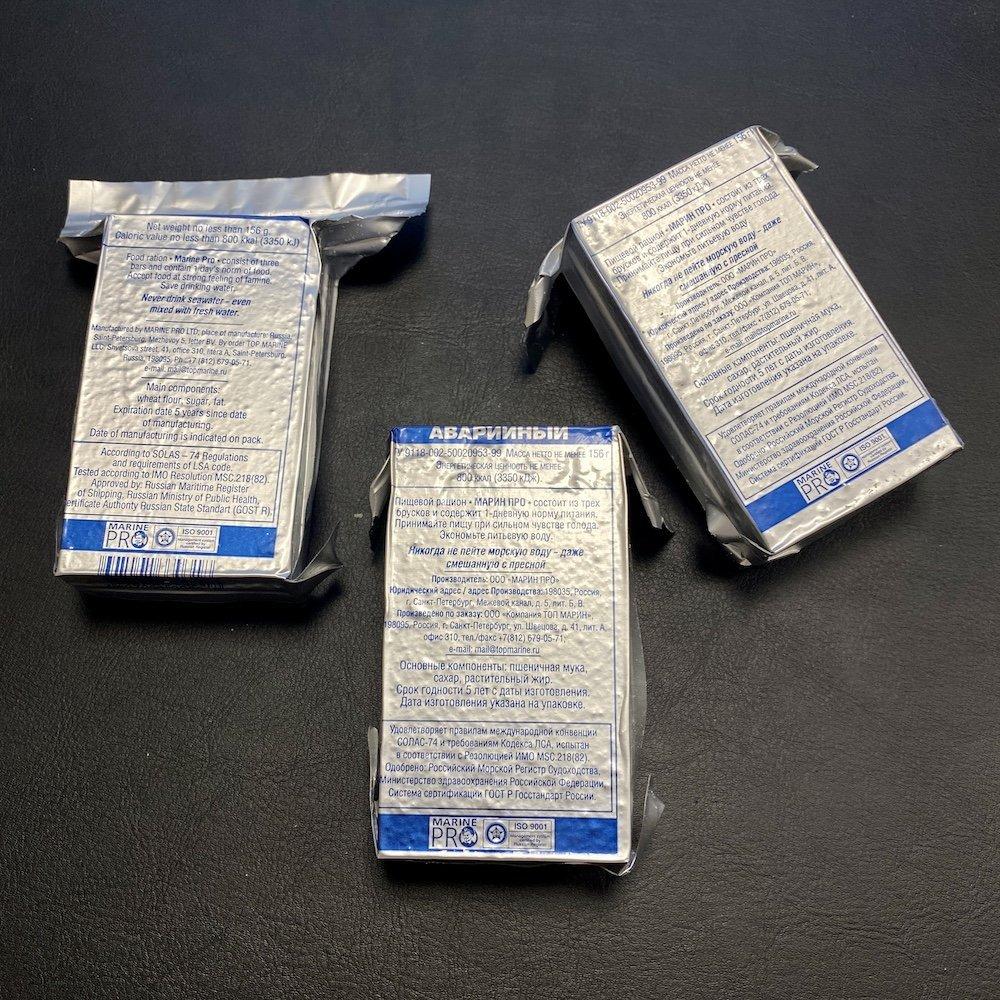 Net weight no less than 156 g.
Caloric value no less than 800 kkal (3350 kJ)
Food ration • Marine Pro • consist of three
bars and contain 1 day's norm of food.
Accept food at strong feeling of famine.
Save drinking water.
Never drink seawater – even
mixed with fresh water.
Manufactured by MARINE PRO LTD, place of manufacture: Russia,
Saint-Petersburg, Mezhevoy 5, letter BV. By order TOP MARINE
LLC. Shvetsova street, 41, office 310, litera A, Saint-Petersburg,
Russia, 198095, Ph.:+7 (812) 679-05-71.
e-mail: mail@topmarine.ru
Main components:
wheat flour, sugar, fat.
Expiration date 5 years since date
of manufacturing.
Date of manufacturing is indicated on pack.
According to SOLAS – 74 Regulations
and requirements of LSA code.
Tested according to IMO Resolution MSC.218(82).
Approved by: Russian Maritime Register
of Shipping, Russian Ministry of Public Health,
ertificate Authority Russian State Standart (GOST R).
MARINE
PRO
ISO 9001
Management system
certified by
Russian Register
АВАРИЙНЫЙ
У 9118-002-50020953-99 Масса нетто не менее 156 г
Энергетическая ценность не менее
800 ккал (3350 кДж).
Пищевой рацион • МАРИН ПРО • состоит из трех
брусков и содержит 1-дневную норму питания.
Принимайте пищу при сильном чувстве голода.
Экономьте питьевую воду.
Никогда не пейте морскую воду – даже
смешанную с пресной
Производитель: ООО «МАРИН ПРО»
Юридический адрес / адрес Производства: 198035, Россия,
г. Санкт-Петербург, Межевой канал, д. 5, лит. Б, В.
Произведено по заказу: ООО «Компания ТОП МАРИН»,
198095, Россия, г. Санкт-Петербург, ул. Швецова, д. 41, лит. А,
офис 310, тел./факс +7(812) 679-05-71;
e-mail: mail@topmarine.ru
Основные компоненты: пшеничная мука,
сахар, растительный жир.
Срок годности 5 лет с даты изготовления.
Дата изготовления указана на упаковке.
Удовлетворяет правилам международной конвенции
СОЛАС-74 и требованиям Кодекса ЛСА, испытан
в соответствии с Резолюцией ИМО MSC.218(82).
Одобрено: Российский Морской Регистр Судоходства,
Министерство здравоохранения Российской Федерации,
Система сертификации ГОСТ Р Госстандарт России.
MARINE
PRO
ISO 9001
Management system
certified by
Russian Register
У 9118-002-50020953-99 Масса нетто не менее 156 г
Энергетическая ценность не менее
800 ккал (3350 кДж).
Пищевой рацион • МАРИН ПРО • состоит из трех
брусков и содержит 1-дневную норму питания.
Принимайте пищу при сильном чувстве голода.
Экономьте питьевую воду.
Никогда не пейте морскую воду – даже
смешанную с пресной
Производитель: ООО «МАРИН ПРО»
Юридический адрес / адрес Производства: 198035, Россия,
г. Санкт-Петербург, Межевой канал, д. 5, лит. Б, В.
Произведено по заказу: ООО «Компания ТОП МАРИН»,
198095, Россия, г. Санкт-Петербург, ул. Швецова, д. 41, лит. А,
офис 310, тел./факс +7(812) 679-05-71;
e-mail: mail@topmarine.ru
Основные компоненты: пшеничная мука,
сахар, растительный жир
Срок годности 5 лет с даты изготовления.
Дата изготовления указана на упаковке
Удовлетворяет правилам международной конвенции
СОЛАС-74 и требованиям Кодекса ЛСА, испытан
в соответствии с Резолюцией ИМО MSC.218(82).
Одобрено: Российский Морской Регистр Судоходства,
Министерство здравоохранения Российской Федерации,
Система сертификации ГОСТ Р Госстандарт России.
MARINE
PRO
ISO 9001